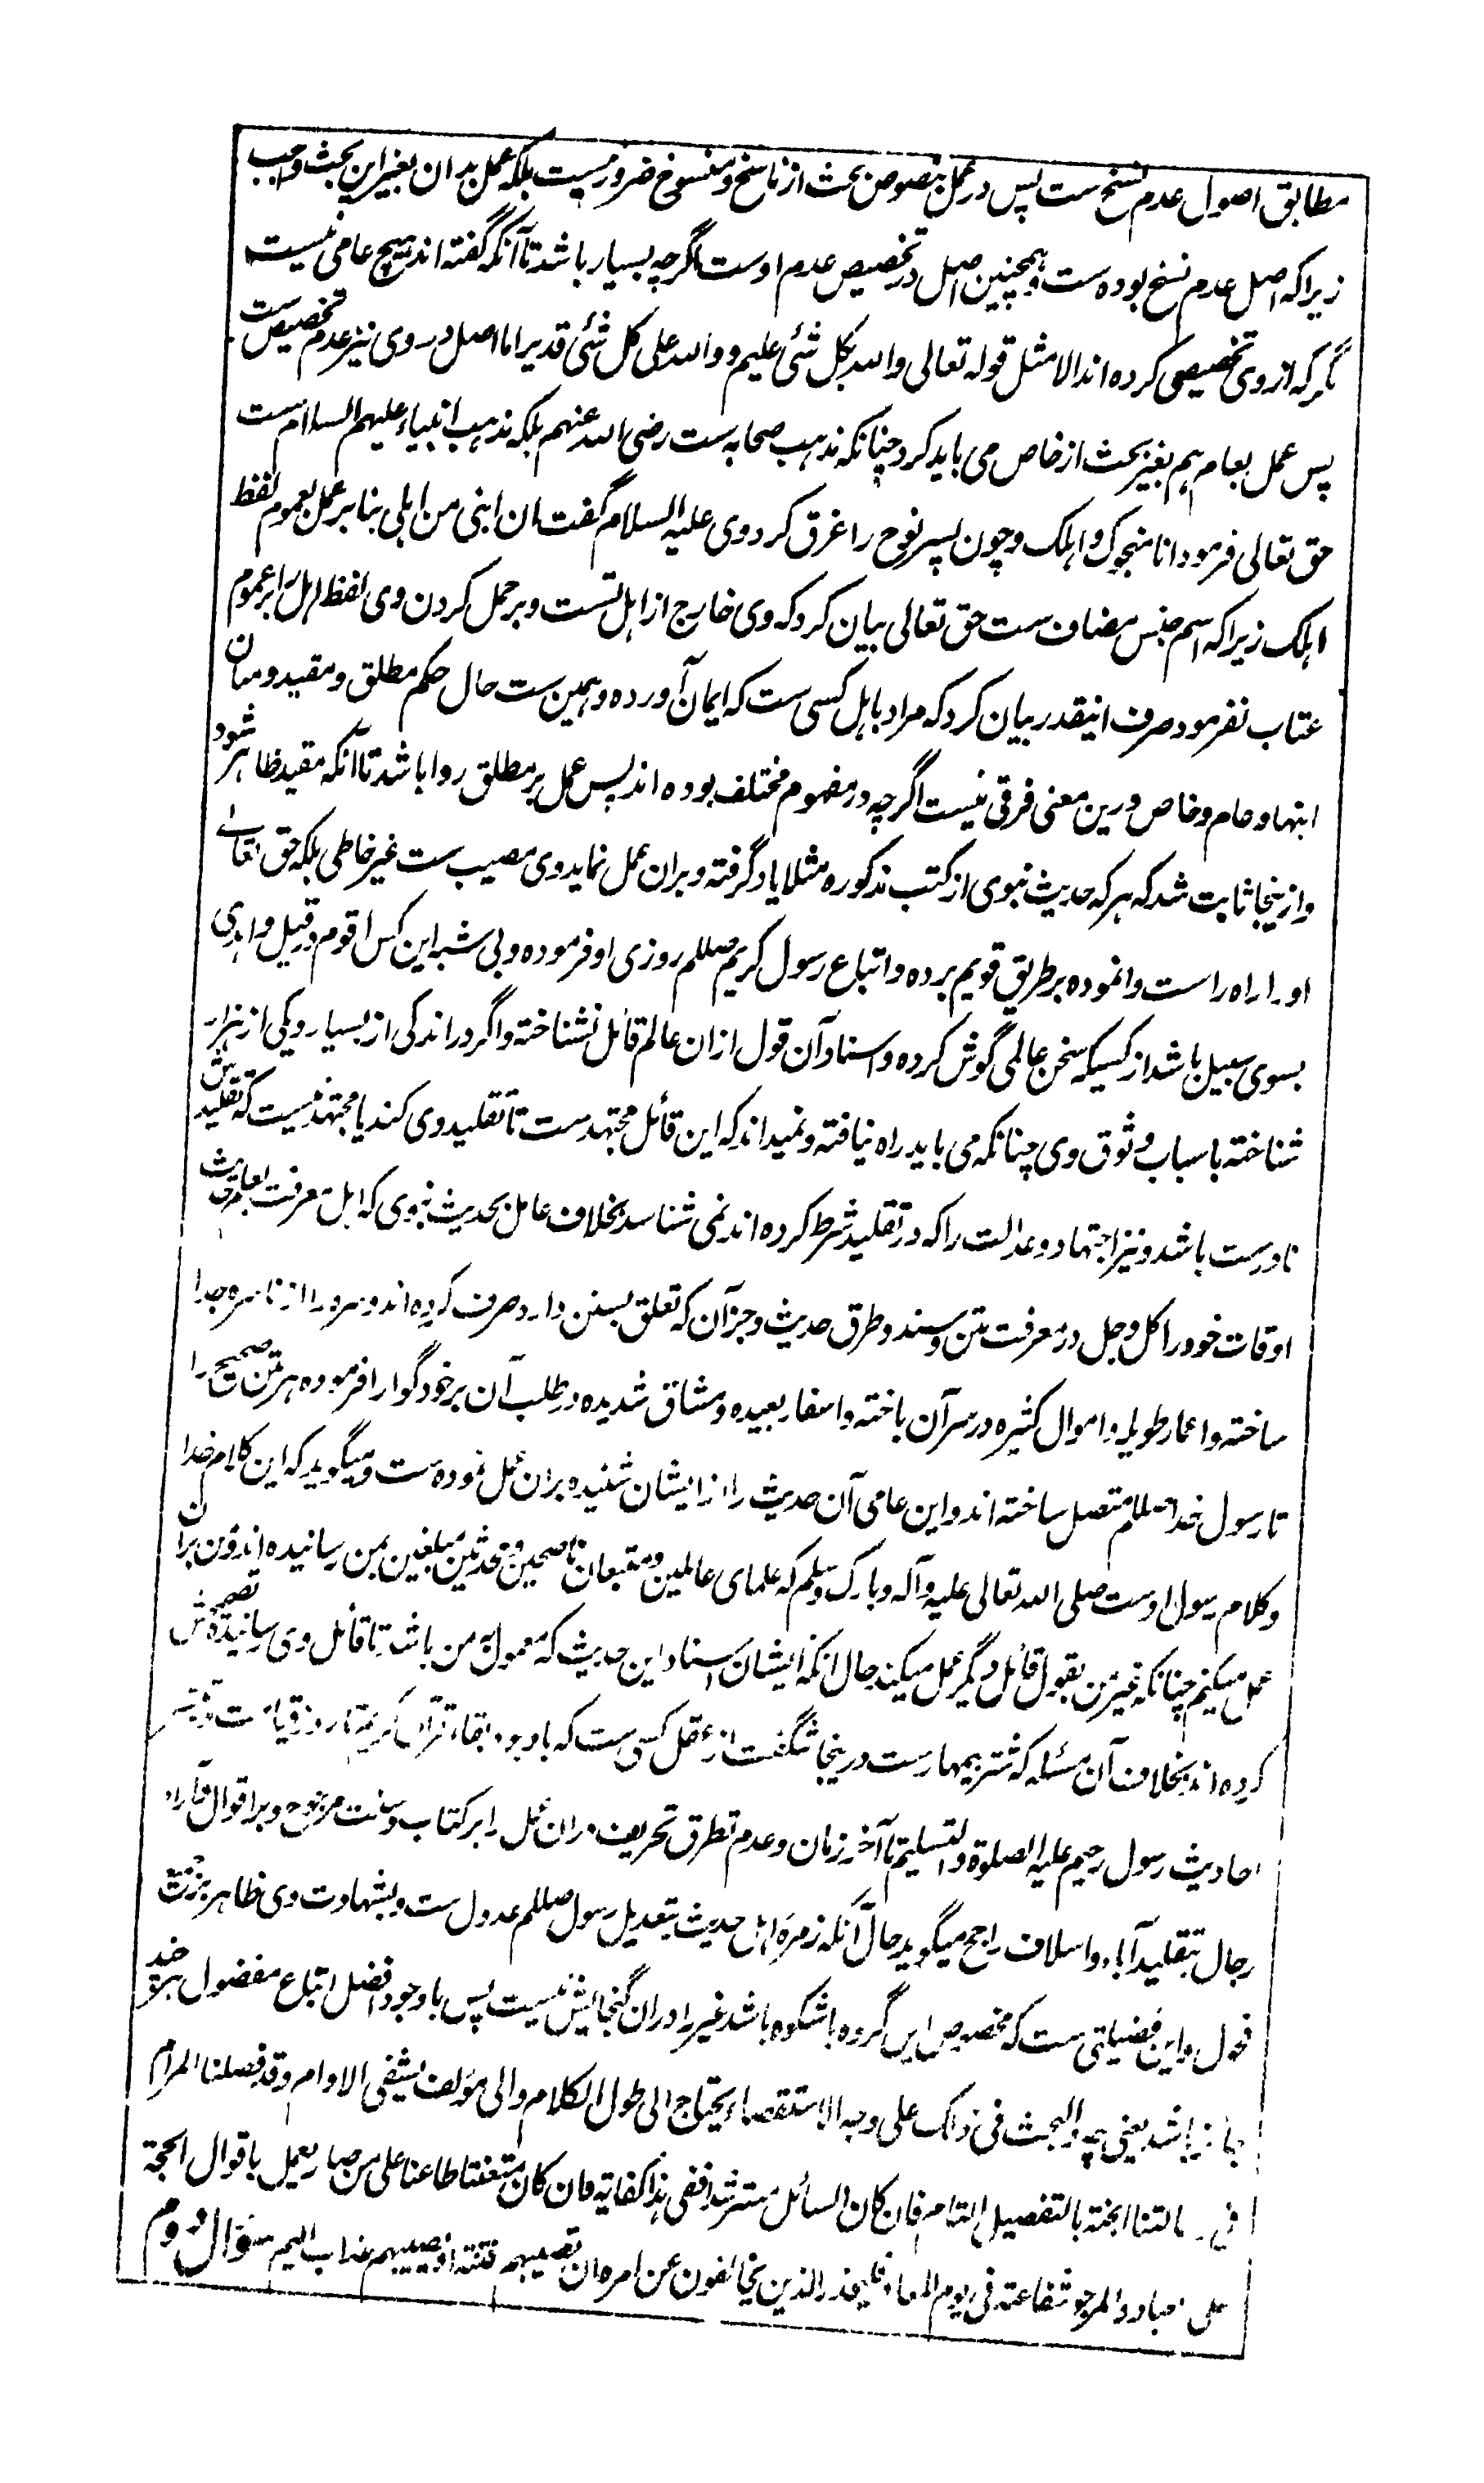 مطابق اصول عدم نسخ ست پس در عمل بنصوص بحث از ناسخ و منسوخ ضرور نیست بلکه عمل بدان بغیر این بحث واجب
زیرا که اصل عدم نسخ بوده ست و همچنین اصل در تخصیص عدم اوست اگرچه بسیار باشد تا آنکه گفته اند هیچ عامی نیست
مگر که از وی تخصیصی کرده اند الا مثل قوله تعالی والله بکل شئی علیم و والله علی کل شئی قدیر اما اصل در وی نیز عدم تخصیص ست
پس عمل بعام هم بغیر بحث از خاص می باید کرد چنانکه مذهب صحابه ست رضی الله عنهم بلکه مذهب انبیاء علیهم السلام ست
حق تعالی فرمود انا منجوک و اهلک و چون پسر نوح را غرق کرد وی علیه السلام گفت ان ابنی من اهلی بنا بر عمل بعموم لفظ
اهلک زیرا که اسم جنس مضاف ست حق تعالی بیان کرد که وی خارج از اهل تست و بر حمل کردن وی لفظ اهل را بر عموم
عتاب نفرمود صرف اینقدر بیان کرد که مراد باهل کسی ست که ایمان آورده و همین ست حال حکم مطلق و مقید و میان
اینها و عام و خاص درین معنی فرقی نیست اگرچه در مفهوم مختلف بوده اند پس عمل بر مطلق روا باشد تا آنکه مقید ظاهر شود
و ازینجا ثابت شد که هر که حدیث نبوی از کتب مذکوره مثلا یاد گرفته و بران عمل نماید وی مصیب ست غیر خاطی بلکه حق تعالے
او را راه راست وا نموده بر طریق قویم برده و اتباع رسول کریم صللم روزی او فرموده و بی شبه این کس اقوم در قیل و اهدی
بسوی سبیل باشد از کسیکه سخن عالمی گوش کرده و اسناد آن قول ازان عالم قائل نشناخته و اگر در اندکی از بسیار و یکی از هزار
شناخته باسباب وثوق وی چنانکه می باید راه نیافته و نمیداند که این قائل مجتهد ست تا تقلید وی کند یا مجتهد نیست که تقلیدش
نادرست باشد و نیز اجتهاد و عدالت را که در تقلید شرط کرده اند نمی شناسد بخلاف عامل بحدیث نبوی که اهل معرفت
اوقات خود را کل و جل در معرفت متن و سند و طرق حدیث و جز آن که تعلق بسنن دارد صرف کرده اند و سره را از ناسره جدا
ساخته و اعمار طویله و اموال کثیره در سر آن باخته و اسفار بعیده و مشاق شدیده در طلب آن بر خود گوارا فرموده هر متن صحیح را
تا رسول خدا صللم متصل ساخته اند و این عامی آن حدیث را از ایشان شنیده بران عمل نموده ست و میگوید که این کلام خدا
و کلام رسول اوست صلی الله تعالی علیه و آله و بارک وسلم که علمای عاملین و متبعان ناصحین و محدثین مبلغین بمن رسانیده اند و من بران
عمل میکنم چنانکه غیر من بقول قائل دیگر عمل میکند حال آنکه ایشان اسناد این حدیث که معمول به من باشد تا قائل وی رسانیده تصحیحش
کرده اند بخلاف آن مسئله که شتر بیمهار ست درینجا شگفت از عقل کسی ست که با وجود بقاء قرآن کریم تا روز قیامت
احادیث رسول رحیم علیه الصلوة والتسلیم تا آخر زمان و عدم تطرق تحریف دران عمل را بر کتاب و سنت مرجوح و بر اقوال و آراء
رجال بتقلید آباء و اسلاف راجح میگوید حال آنکه زمره اهل حدیث بتعدیل رسول صللم عدول ست و بشهادت وی ظاهر
فحول و این فضیلتی ست که مخصوص این گروه باشکوه باشد غیر را دران گنجایش نیست پس با وجود افضل اتباع مفضول نزد خرد
جائز باشد یعنی چه والبحث فی ذلک علی وجه الاستقصاء یحتاج الی طول الکلام والی مؤلف یشفی الاوام وقد فصلنا المرام
فی رسالتنا الجنة بالتفصیل التام فان کان السائل مسترشدا ففی هذا کفایة وان کان متعنتا طاعنا علی من صار یعمل باقوال الحجة
علی عباده والمرجو شفاعته فی یوم المعاد فلیحذر الذین یخالفون عن امره ان تصیبهم فتنة او یصیبهم عذاب الیم سؤال دوم